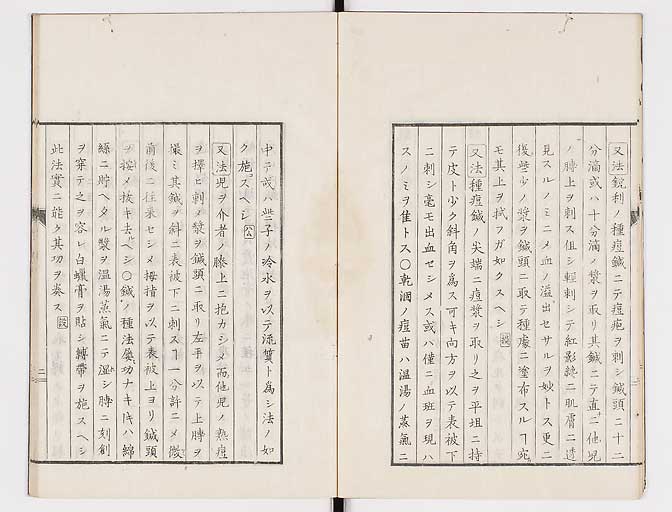 又法鋭利ノ種痘鍼ニテ痘疱ヲ刺シ鍼頭ニ十二
分滴或ハ十分滴ノ漿ヲ取リ其鍼ニテ直ニ他児
ノ膊上ヲ刺ス但シ軽刺シテ紅影纔ニ肌膚ニ透
見スルノミニメ血ノ溢出セサルヲ妙トス更ニ
後些少ノ漿ヲ鍼頭ニ取テ種處ニ塗布スルヿ宛
モ其上ヲ拭フガ如クスヘシ
又法種痘鍼ノ尖端ニ痘漿ヲ取リ之ヲ平坦ニ持
テ皮ト少ク斜角ヲ為ス可キ向方ヲ以テ表被下
ニ刺シ毫モ出血セシメス或ハ僅ニ血斑ヲ現ハ
スノミヲ佳トス○乾涸ノ痘苗ハ温湯ノ蒸氣ニ
中テ或ハ些子ノ冷水ヲ以テ流質ト為シ法ノ如
ク施スヘシ
又法児ヲ介者ノ膝上ニ抱カシメ而他児ノ熟痘
ヲ擇ヒ刺メ漿ヲ鍼頭ニ取リ左手ヲ以テ上膊ヲ
撮ミ其鍼ヲ斜ニ表被下ニ刺スヿ一分許ニメ微
前後ニ往來セシメ拇指ヲ以テ表被上ヨリ鍼頭
ヲ按メ抜キ去ヘシ○鍼ノ種法屡功ナキ時ハ綿
絲ニ貯ヘタル漿ヲ温湯蒸氣ニテ湿シ膊ニ刻創
ヲ穿テ之ヲ容レ白蝋膏ヲ貼シ縛帶ヲ施スヘシ
此法實ニ能ク其功ヲ奏ス
二